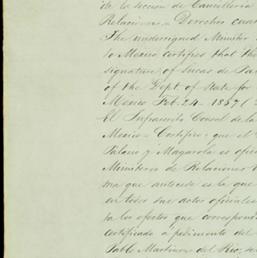 de la seccion de Cancilleria
Relaciones = Derechos cua
The undersigned Minister
to Mexico certifies that the
signature of Lucas de Pa
of the Dept. of State for
Mexico Feb. 24 - 1857
El Infrascrito Consul de la
Mexico = Certifico: que el
Palacio y Magarola es ofici
Ministerio de Relaciones
ma que antecede es la que
en todos sus actos oficiales
ra los efectos que correspond
certificado a pedimento del
Pablo Martinez del Rio, se